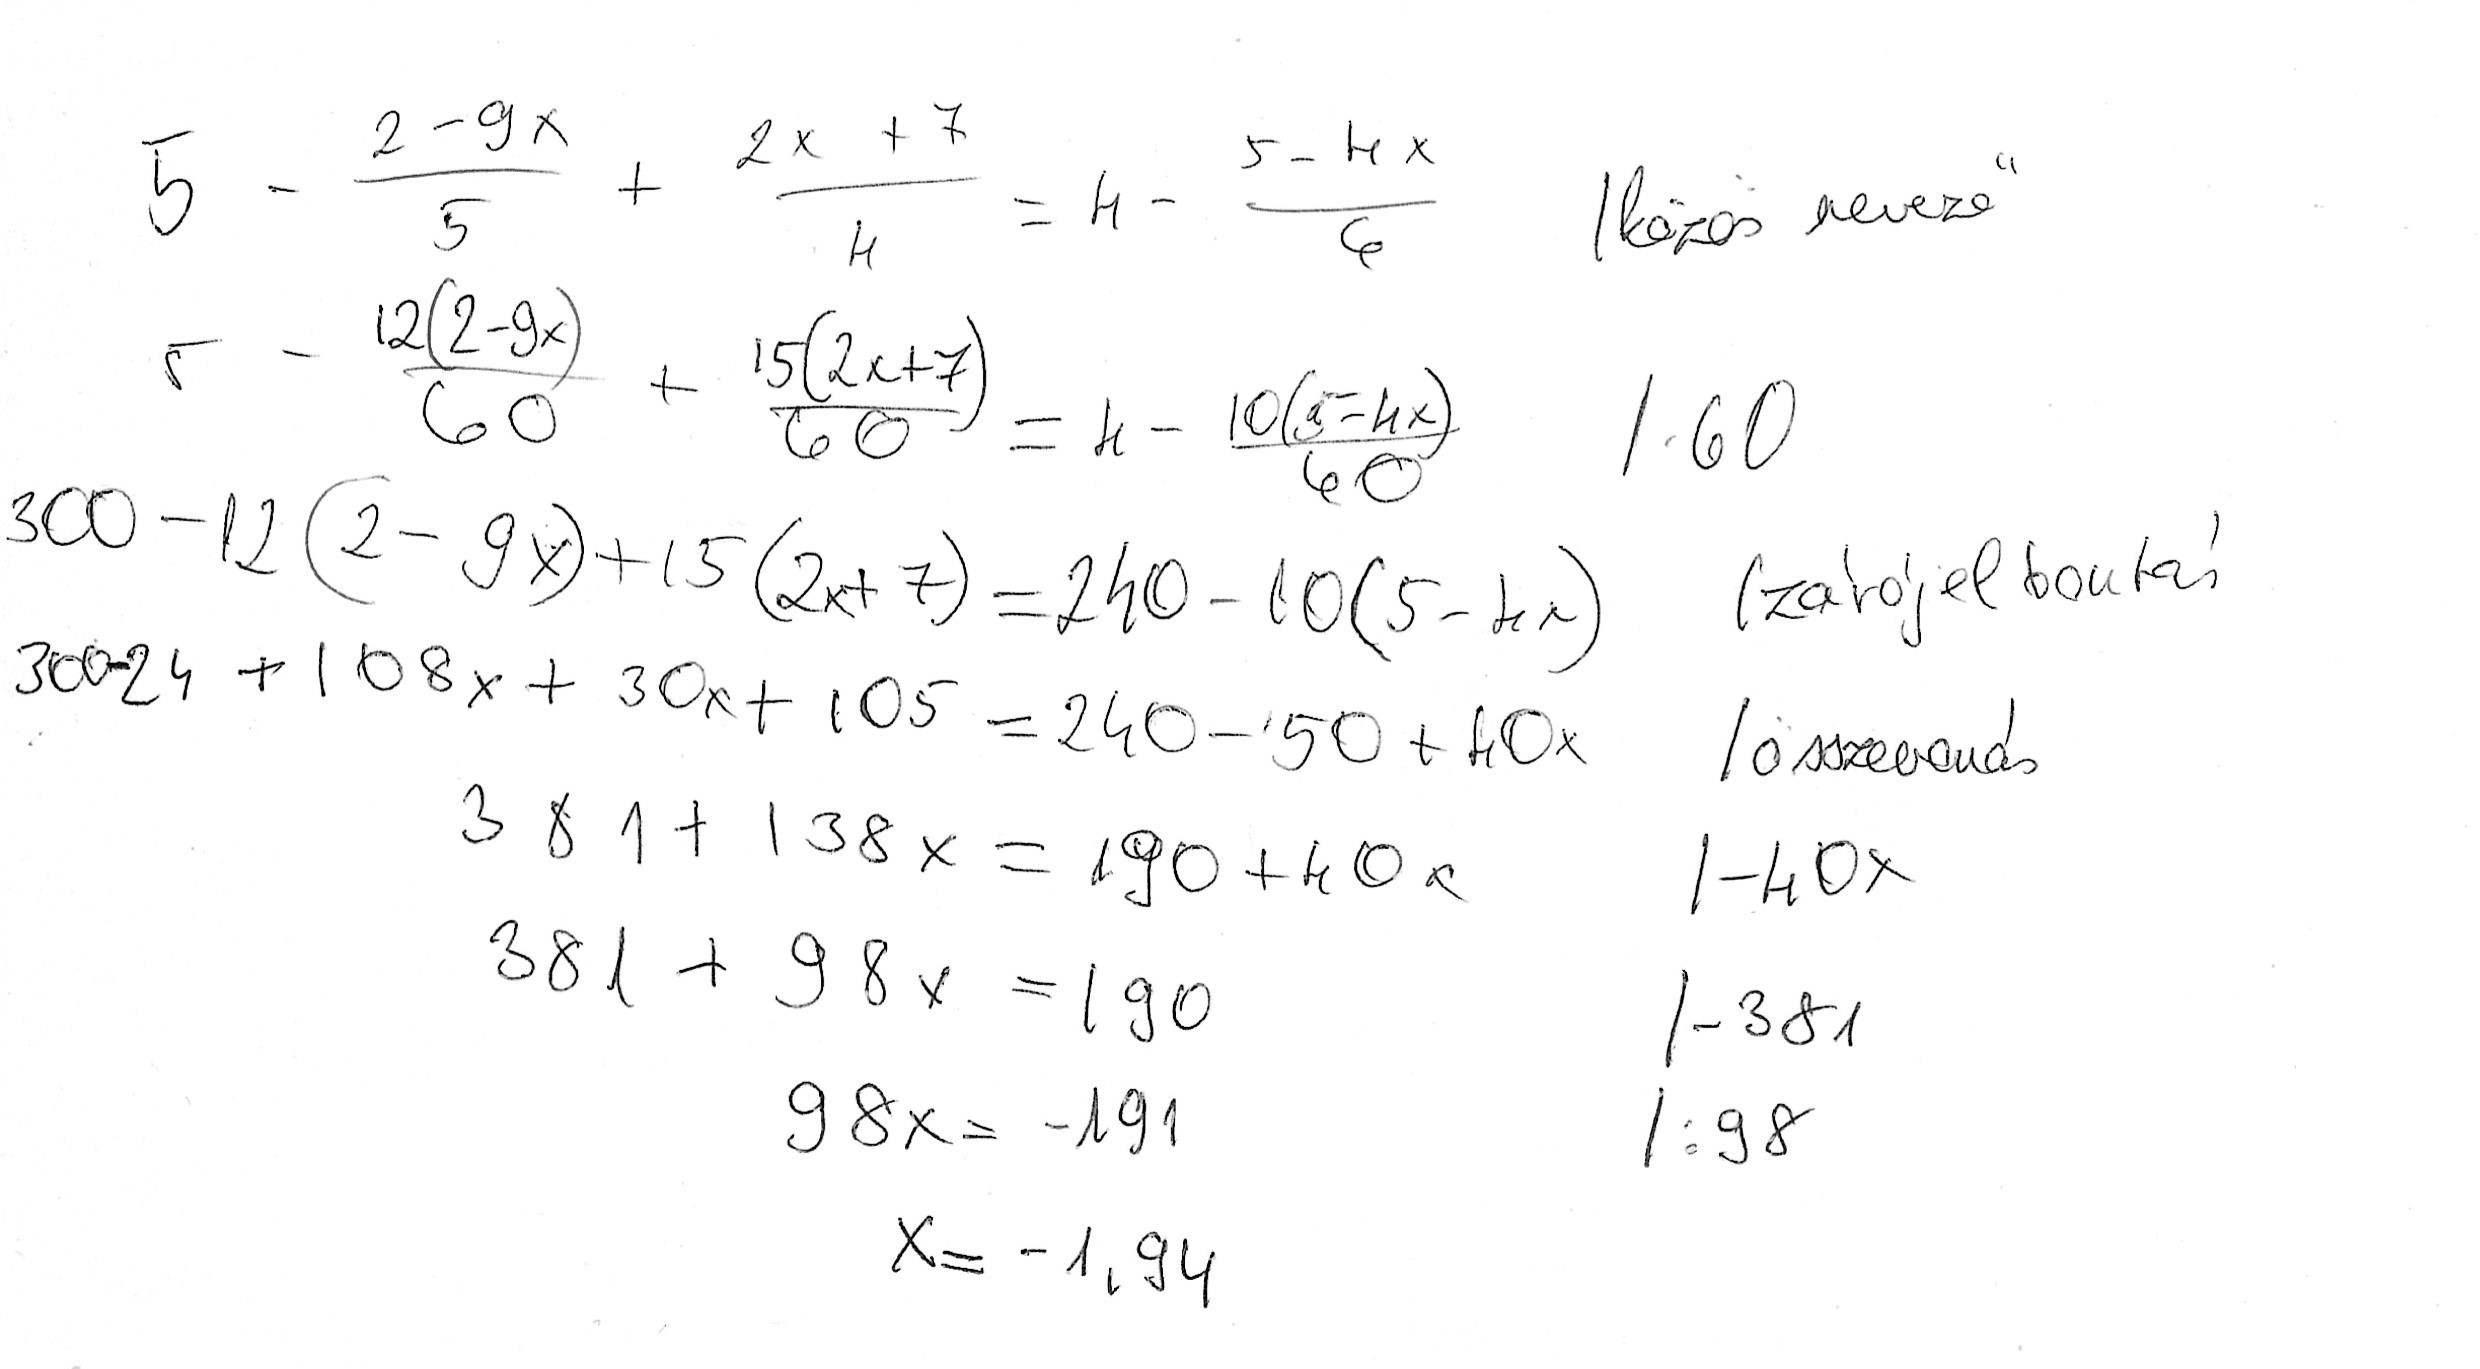 5 - (2-9x)/5 + (2x+7)/4 = 4 - (5-4x)/6 /közös nevező
5 - 12(2-9x)/60 + 15(2x+7)/60 = 4 - 10(5-4x)/60 /·60
300-12(2-9x)+15(2x+7)=240-10(5-4x) /zárójelbontás
300-24+108x+30x+105=240-50+40x /összevonás
381+138x=190+40x /-40x
381+98x=190 /-381
98x=-191 /:98
x=-1,94